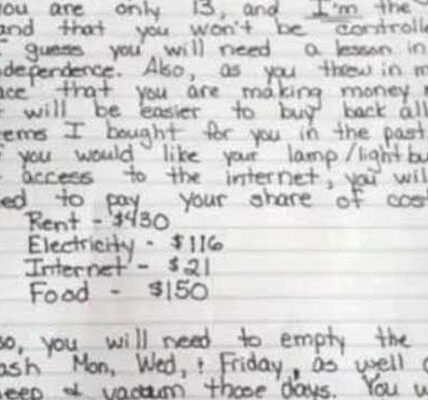 you are only 13, and I'm the
and that you won't be controlle
guess you will need a lesson in
dependence. Also, as you threw in m
ace that you are making money
will be easier to buy back all
ems I bought for you in the past
you would like your lamp/light bu
access to the internet, you wil
ed to pay your share of cost
Rent - $430
Electricity - $116
Internet - $21
Food - $150
so, you will need to empty the
ash Mon, Wed, & Friday, as well
eep & vacuum those days. You w